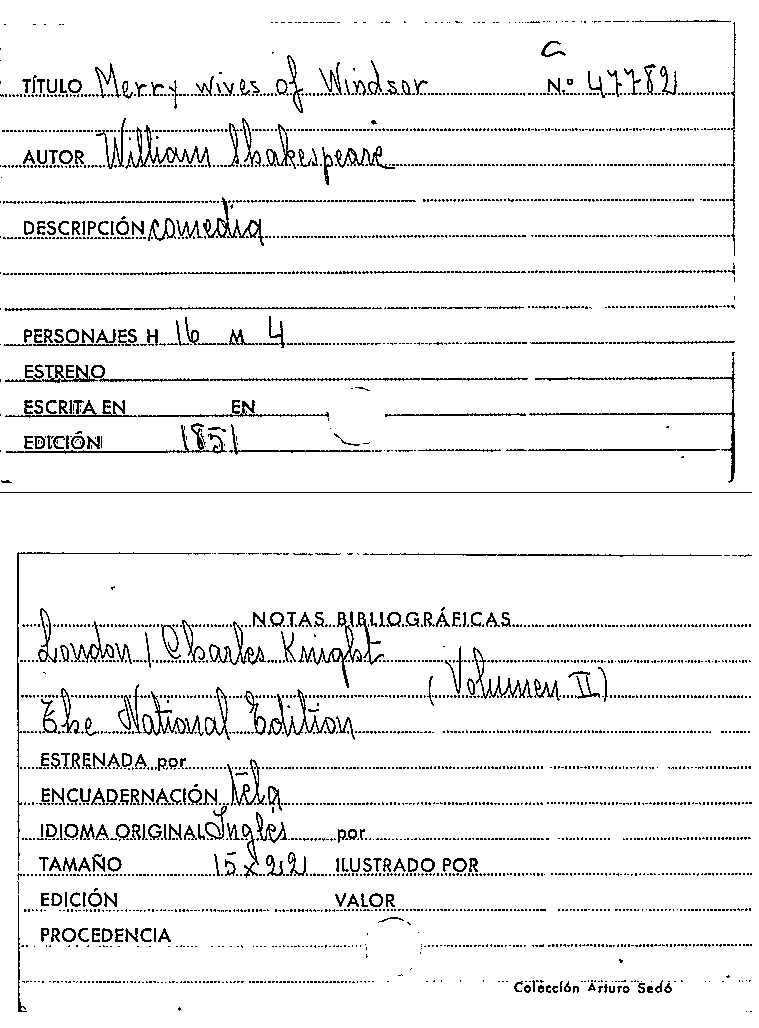 C
TÍTULO Merry wives of Windsor N.º 47782
AUTOR William Shakespeare
DESCRIPCIÓN comedia
PERSONAJES H 16 M 4
ESTRENO
ESCRITA EN EN
EDICIÓN 1851
NOTAS BIBLIOGRÁFICAS
London / Charles Knight
(Volumen II)
The National Edition
ESTRENADA por
ENCUADERNACIÓN tela
IDIOMA ORIGINAL Inglés por
TAMAÑO 15 x 22 ILUSTRADO POR
EDICIÓN VALOR
PROCEDENCIA
Colección Arturo Sedó